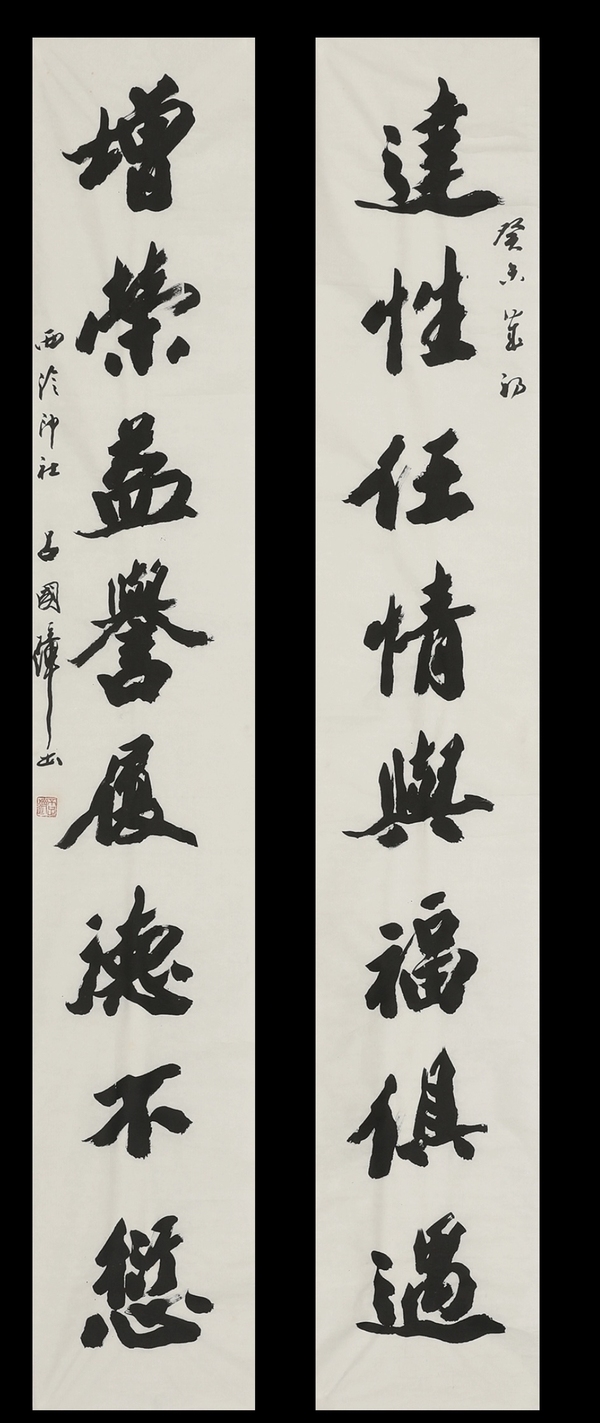 達性任情與福俱遇
癸未歲初
增榮益譽履德不愆
西泠印社 呂國璋書